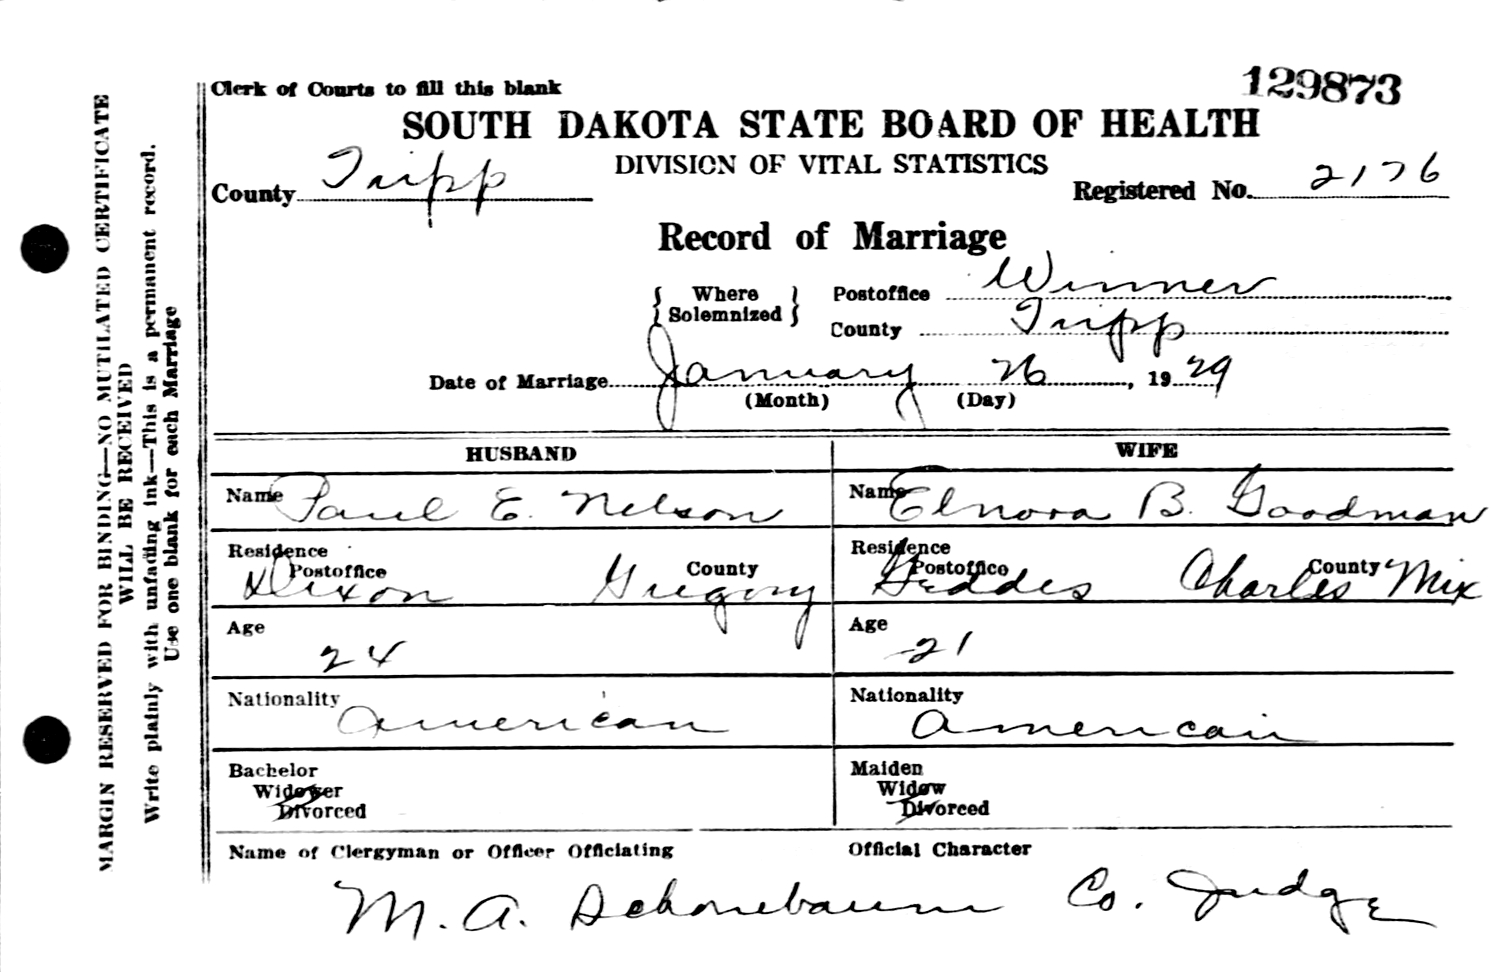 129873
Clerk of Courts to fill this blank
SOUTH DAKOTA STATE BOARD OF HEALTH
DIVISION OF VITAL STATISTICS
County Tripp
Registered No. 2176
Record of Marriage
Where Solemnized
Postoffice Winner
County Tripp
Date of Marriage January 26, 1929
(Month) (Day)
HUSBAND WIFE
Name Paul E. Nelson
Name Elnora B. Goodman
Residence
Postoffice Dixon County Gregory
Residence
Postoffice Geddes County Charles Mix
Age 24
Age 21
Nationality American
Nationality American
Bachelor
Widower
Divorced
Maiden
Widow
Divorced
Name of Clergyman or Officer Officiating
Official Character
M. A. Schonebaum Co. Judge
MARGIN RESERVED FOR BINDING—NO MUTILATED CERTIFICATE
WILL BE RECEIVED
Write plainly with unfading ink—This is a permanent record.
Use one blank for each Marriage